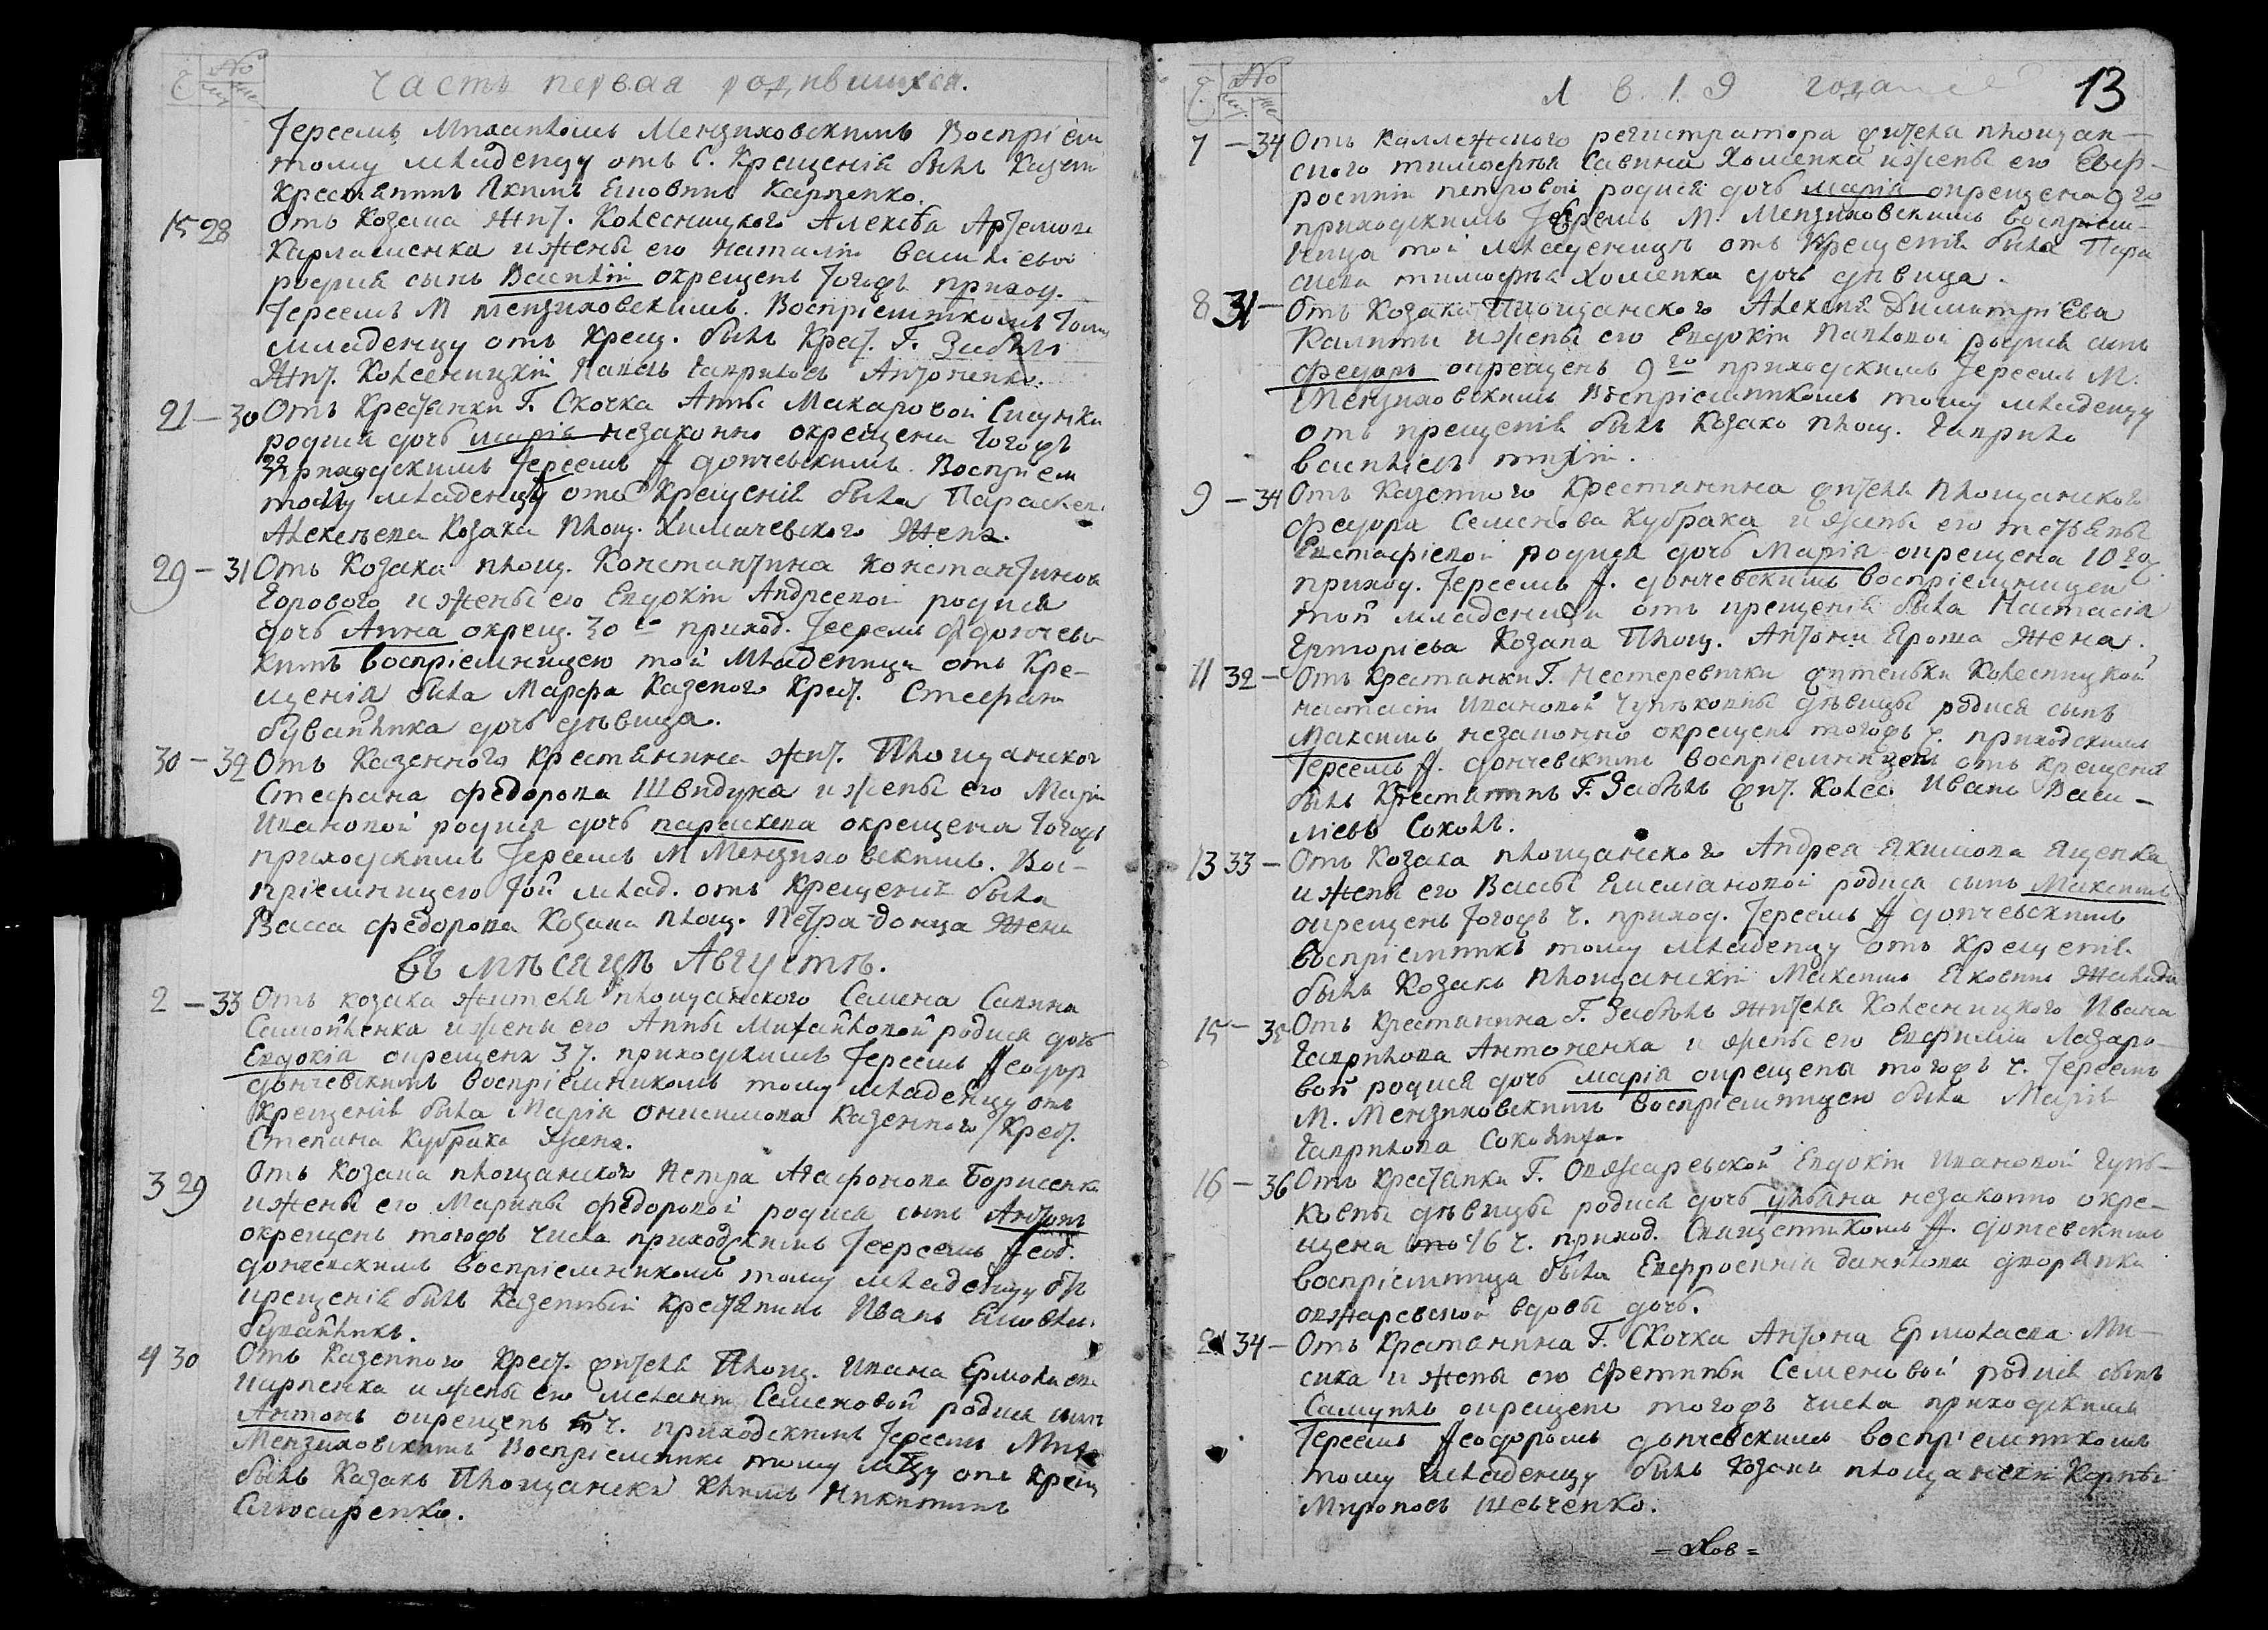 Часть первая родившихся.
Іереемъ Михаиломъ Мензиховскимъ Воспріем
тому младенцу отъ С. Крещенія былъ Казен
Крестянинъ Якимъ Емовинъ Карпенко.
15 28 Отъ Козака Жит. Колесницкого Алексѣя Артемов
Карламенка и жены его наталіи василіевой
родися сынъ Василій окрещенъ тогожъ приход.
Іереемъ М Мензиховскимъ. Воспріемникомъ тому
младенцу отъ Крещ. былъ Крест. Г. Забѣлы
Жит. Колесницкій Павелъ Гавриловъ Антоненко.
21 – 30 Отъ Крестянки Г. Скочка Анны Макаровой
родися дочь марія незаконно окрещена тогожъ
приходскимъ Іереемъ Ѳ дончевскимъ. Воспріем
тому младенцу отъ Крещенія была Параскев.
Алексѣева Козака Площ. Химачевского Жена.
29 – 31 Отъ Козака площ. Константина Константинова
Горового и жены его Евдокіи Андреевой родися
дочь Анна окрещ. 30 го приход. Іереемъ Ѳ дончевс
кимъ воспріемницею той Младеница отъ Кре-
щенія была Марфа Казеного Крест. Стефана
бувайлика дочь дѣвица.
30 – 32 Отъ Казенного Крестянина жит. Площанского
Стефана федорова Швидуна и жены его Маріи
Ивановой родися дочь параскева окрещена тогожъ
приходскимъ Іереемъ М Мензиховскимъ. Вос-
пріемницею той млад. отъ Крещенія была
Васса федорова Козака площ. Петра донца Жена
въ мѣсяцѣ Августѣ.
2 – 33 Отъ козака жителя площанского Семена Савина
Самойленка и жены его Анны Михайловой родися дочь
Евдокія окрещена 3 ч. приходскимъ Іереемъ Ѳеодор
дончевскимъ воспріемникомъ тому младенцу отъ
Крещенія была Марія онисимова Казенного Крест.
Степана Кубрака жена.
3 29 Отъ Козака площанского Петра Агафонова Борисенка
и жены его Марины федоровой родися сынъ Антонъ
окрещенъ тогожъ числа приходскимъ Іереемъ Ѳеод.
дончевскимъ воспріемникомъ тому младенцу отъ
крещенія былъ Казенный Крестянинъ Иванъ
бувайликъ.
4 30 Отъ Казенного Крест. жителя Площ. Ивана Ермолаева
Карпенка и жены его меланіи Семеновой родися сынъ
Антонъ окрещенъ 5 ч. приходскимъ Іереемъ Мих
Мензиховскимъ Воспріемникъ тому мцу отъ Крещ
былъ Казакъ Площанскій Никитинъ
Слюсаренко.
1 8 1 9 года 13
7 – 34 Отъ Каллежского регистратора жителя площан-
ского тимофѣя Савина Хоменка и жены его Евф-
росиніи петровой родися дочь марія окрещена 9 го
приходскимъ Іереемъ М. Мензиховскимъ воспріем-
ница той младеницѣ отъ Крещенія была Пара
скева тимофѣя Хоменка дочь дѣвица.
8 31 – Отъ Козака Площанского Алексѣя Димитріева
Калиты и жены его Евдокіи Павловой родися сынъ
федоръ окрещенъ 9 го приходскимъ Іереемъ М.
Мензиховскимъ Воспріемникомъ тому младенцу
отъ крещенія былъ Козакъ площ. Гаврило
василіевъ тихій.
9 – 34 Отъ Казенного Крестянина жителя площанского
федора Семенова Кубрака и жены его тетьяны
Евстафіевой родися дочь Марія окрещена 10 го
приход. Іереемъ Ѳ. дончевскимъ воспріемницей
той младеници отъ крещенія была Настасія
Григоріева Козака Площ. Антона Ероша Жена.
11 32 – Отъ Крестянки Г. Нестеревички жительки Колесницкой
настасіи Ивановой дѣвицы родися сынъ
Максимъ незаконно окрещенъ тогожъ ч. приходскимъ
Іереемъ Ѳ. дончевскимъ воспріемникомъ отъ крещенія
былъ Крестянинъ Г. Забѣлы жит. Колес. Иванъ Васи-
ліевъ Соколъ.
13 33 – Отъ Козака площанского Андрея Якимова Яценка
и жены его Вассы Емеліановой родися сынъ Максимъ
окрещенъ тогожъ ч. приход. Іереемъ Ѳ дончевскимъ
воспріемникъ тому младенцу отъ Крещенія
былъ Козакъ площанскій Максимъ Яковинъ
15 – 35 Отъ Крестянина Г. Забѣлы жителя Колесницкого Ивана
Гаврилова Антоненка и жены его Евфиміи Лазаро-
вой родися дочь марія окрещена тогожъ ч. Іереемъ
М. Мензиховскимъ воспріемницею была Марія
Гаврилова Соколиха.
16 – 36 Отъ Крестянки Г. Овжаревской Евдокіи Ивановой
ковны дѣвицы родися дочь уліана незаконно окре-
щена 16 ч. приход. Священникомъ Ѳ. дончевскимъ
воспріемница была Евфросинія данилова дворянки
овжаревской вдовы дочь.
21 34 – Отъ Крестянина Г. Скочка Антона Ермолаева Ми-
сика и жены его Фетиніи Семеновой родися сынъ
Самуилъ окрещенъ тогожъ числа приходскимъ
Іереемъ Ѳеодоромъ дончевскимъ воспріемникомъ
тому младенцу былъ Козакъ площанскій Корній
Мироновъ Шевченко.